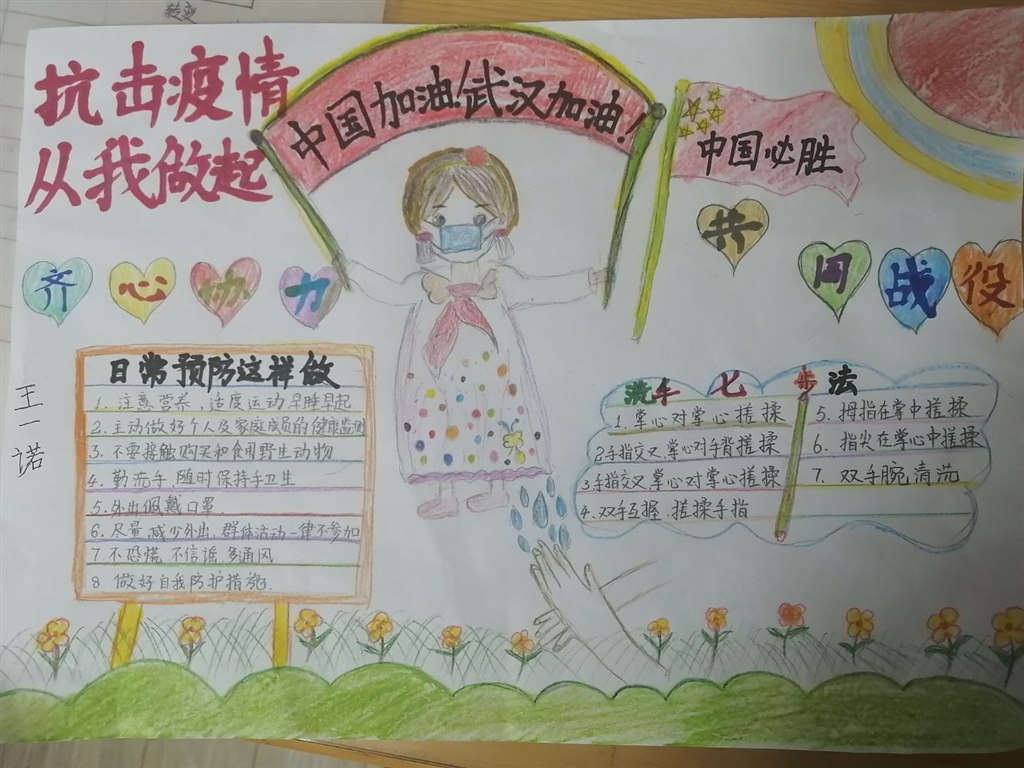 转变
抗击疫情
从我做起
中国加油!武汉加油!
中国必胜
共同战役
齐心协力
王一诺
日常预防这样做
1. 注意营养,适度运动 早睡早起
2. 主动做好个人及家庭成员的健康监测
3. 不要接触购买和食用野生动物
4. 勤洗手 随时保持手卫生
5. 外出佩戴口罩
6. 尽量减少外出,群体活动一律不参加
7. 不恐慌 不信谣 多通风
8 做好自我防护措施.
洗手七步法
1. 掌心对掌心搓揉
2手指交叉 掌心对手背搓揉
3手指交叉 掌心对掌心搓揉
4. 双手互握 搓揉手指
5. 拇指在掌中搓揉
6. 指尖在掌心中搓揉
7. 双手腕清洗